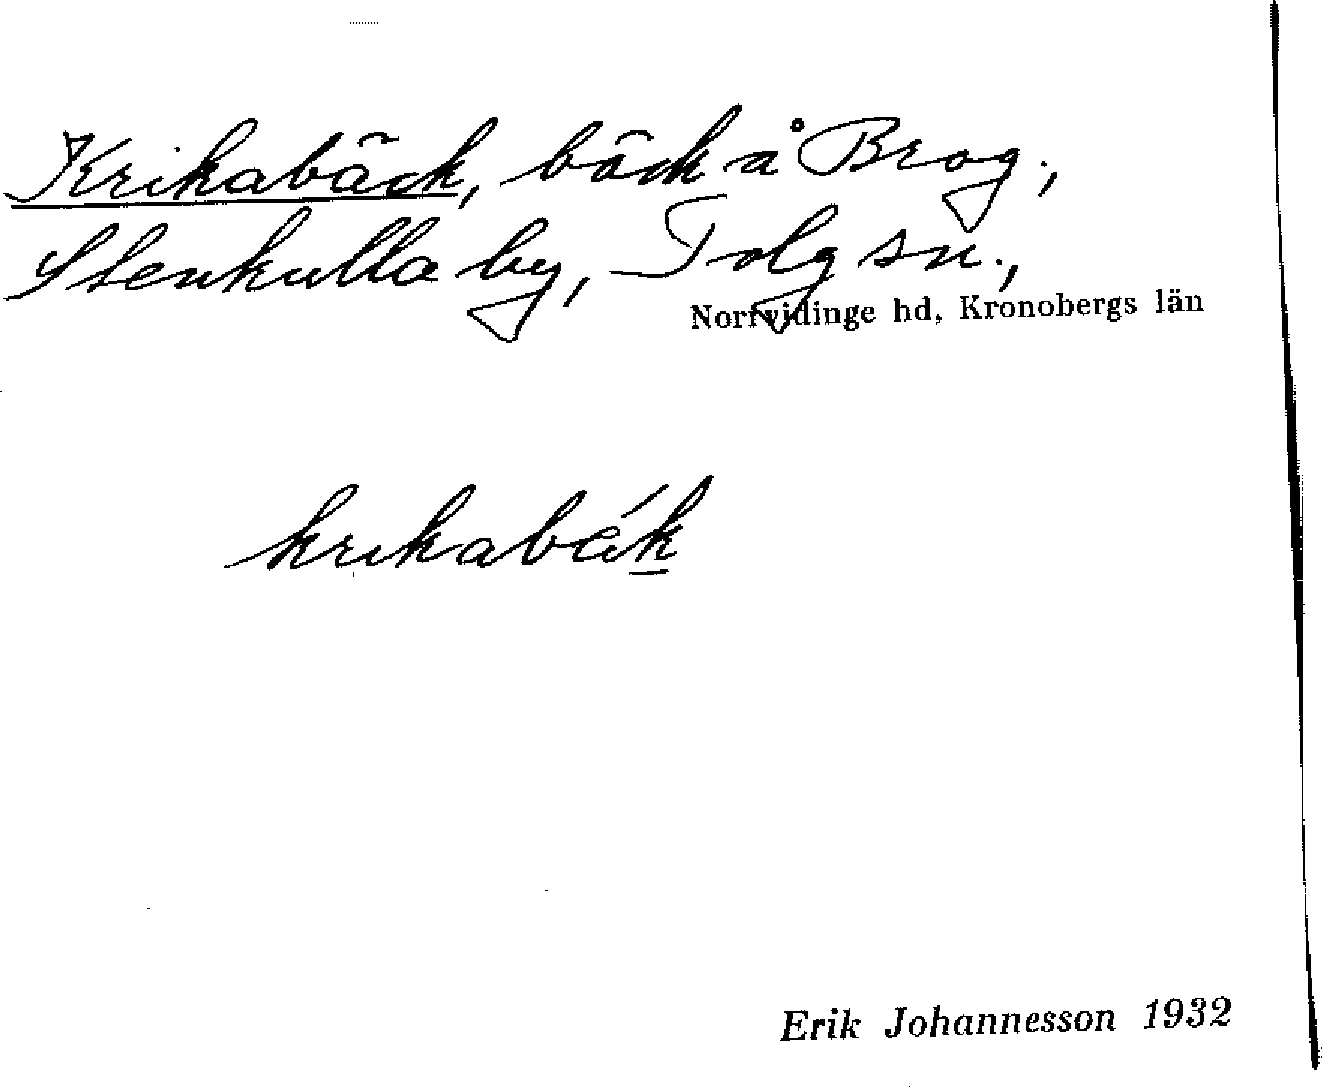 Krikabäck, bäck å Brog.,
Stenkulla by, Tolg sn.,
Norrvidinge hd, Kronobergs län
krikabék
Erik Johannesson 1932